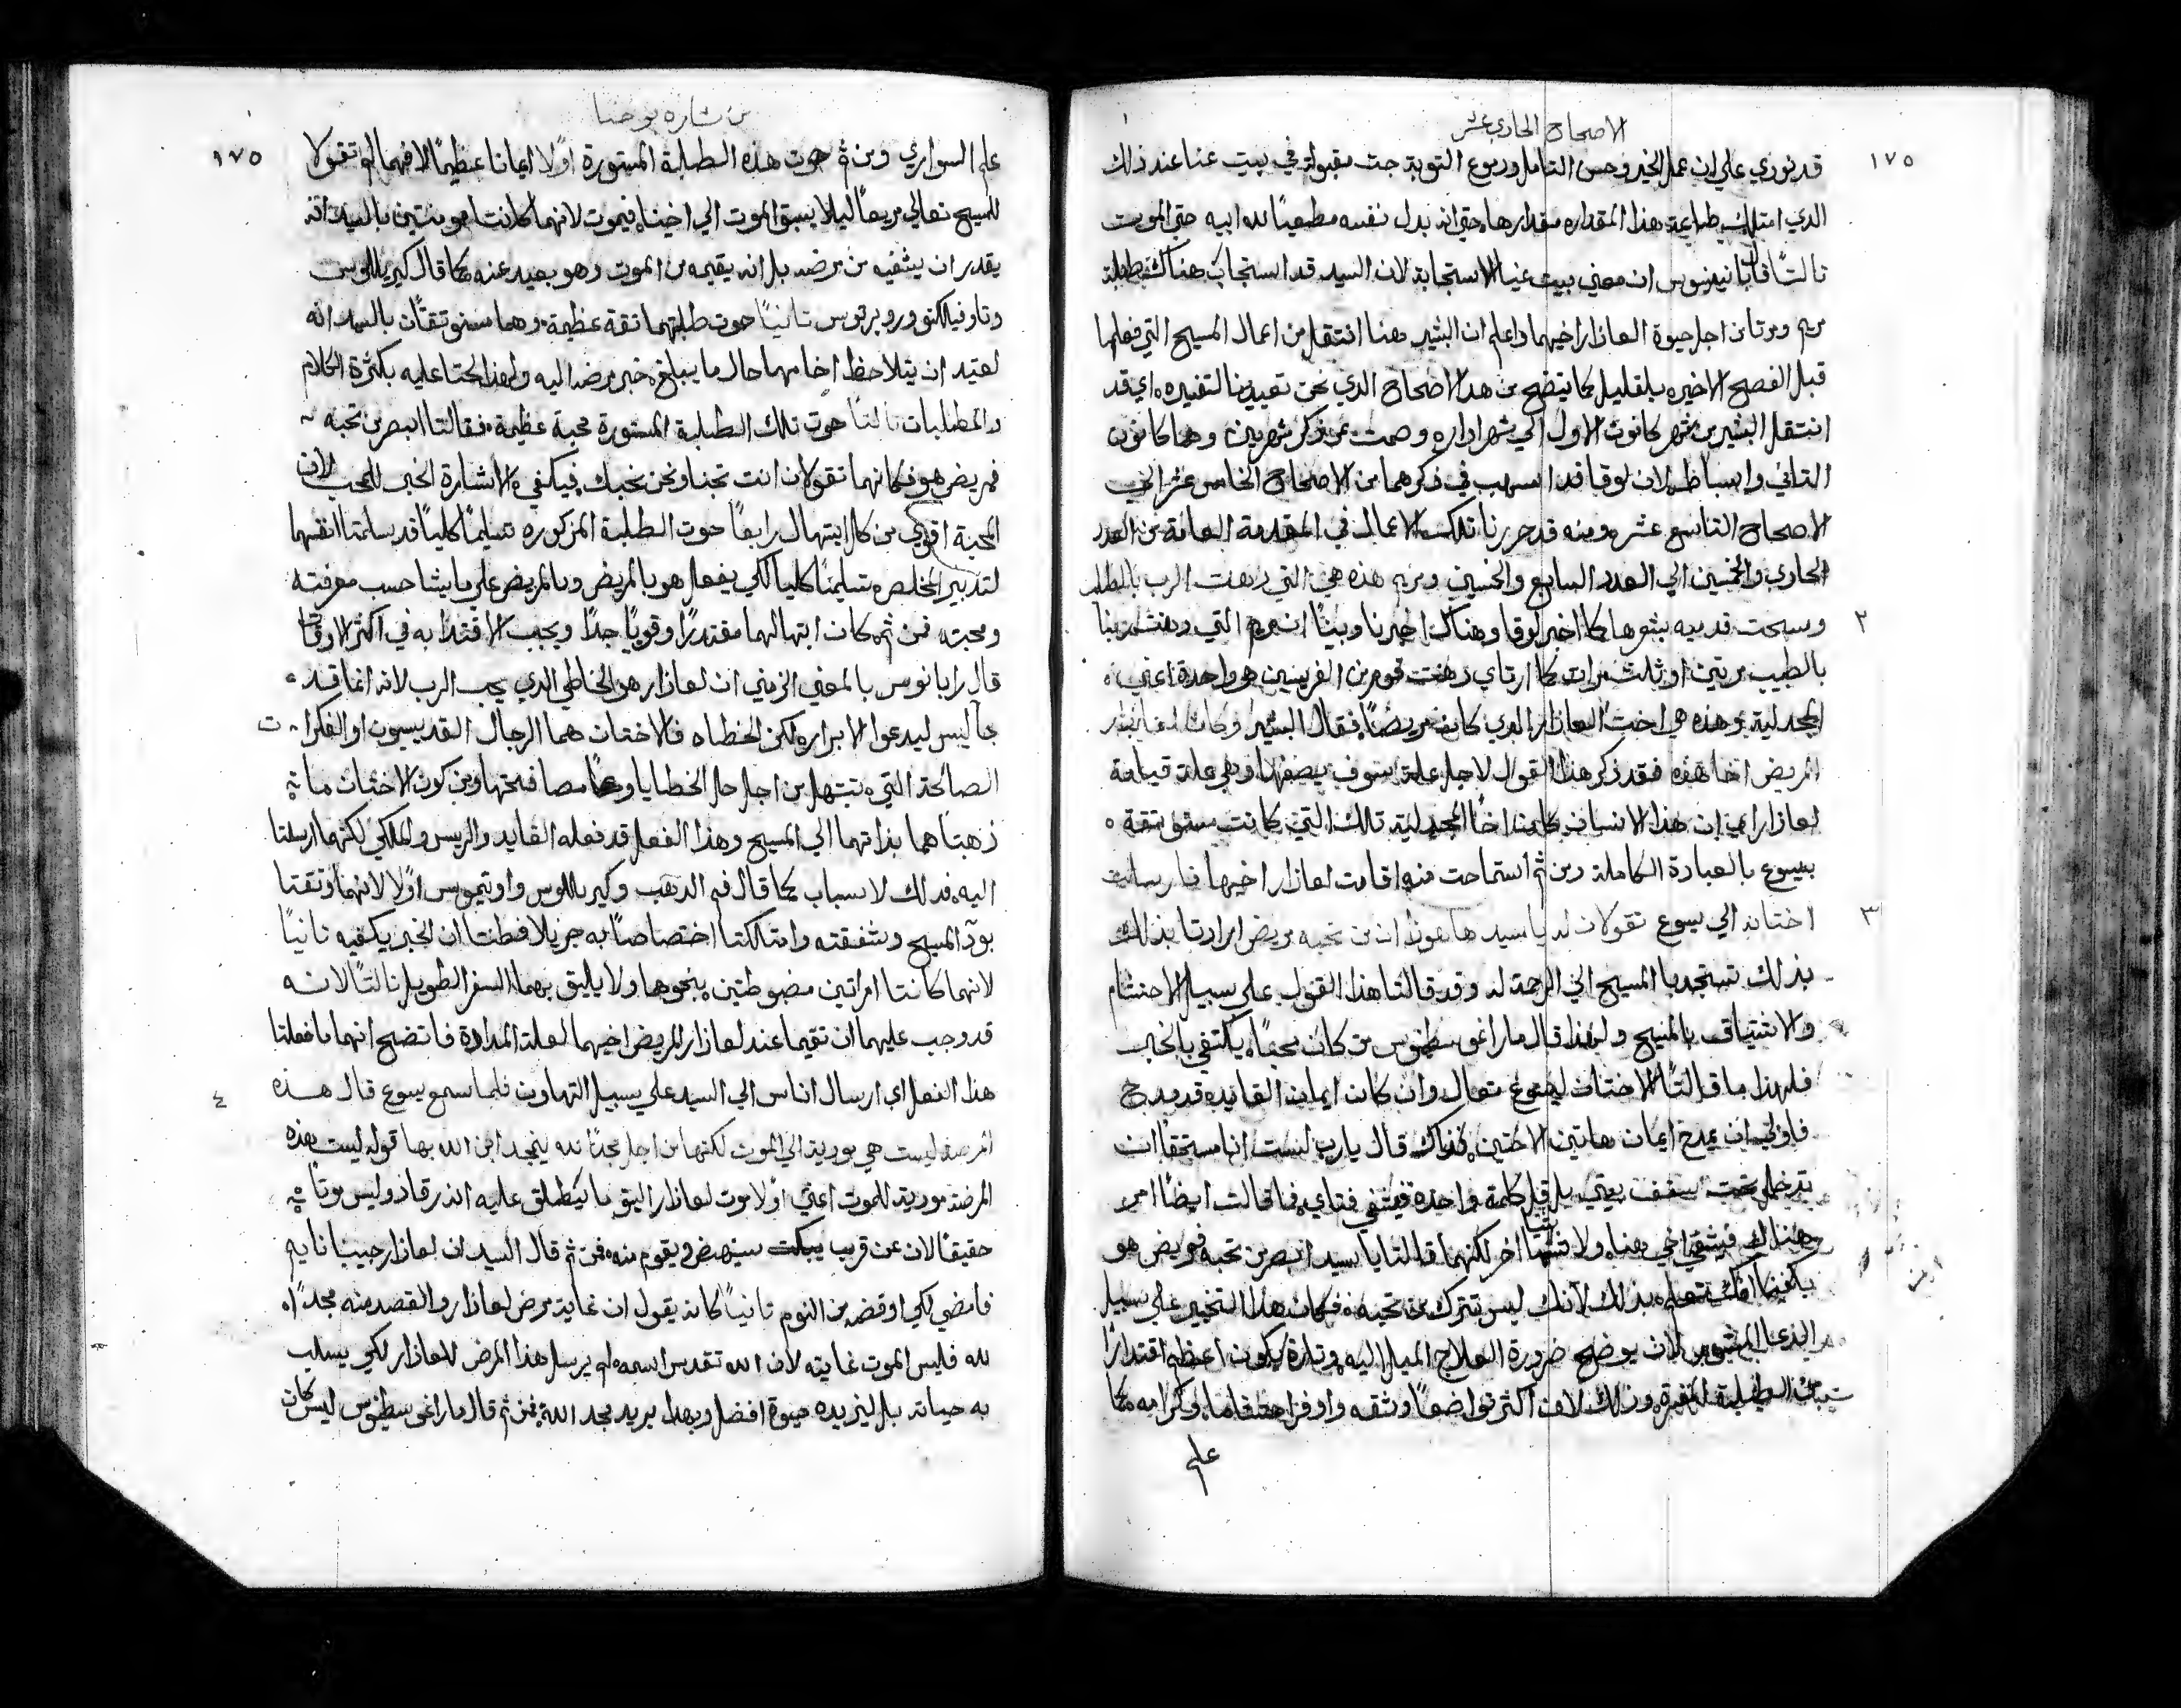 الاصحاح الحادي عشر
١٧٥
قد نودي علي ان عمل الخير وحسن التامل ودموع التوبة جت مقبولة في بيت عنا عند ذلك
الدي امتلك طاعة هذا المقداره مقدارها حتي انه بدل نفسه مطيعًا لله ابيه حتي الموت
تالتًا قال ان معني بيت عنيا الاستجابة لان السيد قد استجاب هناك طلبة
مريم ومرتا من اجل حيوة العازار اخيهما واعلم ان البشير هنا انتقل من اعمال المسيح التي فعلها
قبل الفصح الاخيره بقليل كما يتضح من هدا الاصحاح الدي نحن تفسيره اي قد
انتقل البشير من شهر كانون الاول الي شهر اداره وصمت عن ذكر شهرين وهما كانون
التاني واسباط لان لوقا قد اسهب في ذكرهما من الاصحاح الخامس عشر الي
الاصحاح التاسع عشر ومنه قد حررنا تلك الاعمال في المقدمة العامة من العدد
الحادي والخمسين الي العدد السابع والخمسين ومريم هذه هي التي دهنت الرب بالطيب
٢
ومسحت قدميه بشعرها كما اخبر لوقا وهناك اخبرنا وبينا ان مريم التي دهنت ربنا
بالطيب مرتين او ثلث مرات كما ارتاي قوم من هي واحدة اعني
المجدلية وهذه هي اخت العازار الدي كان مريضًا فقال البشير وكان لعازار
المريض اخا هذه فقد ذكر هذا القول لاجل علة سوف يصفها وهي علة قيامة
لعازار اي ان هذا الانسان كان اخًا المجدلية تلك التي كانت
بيسوع بالعبادة الكاملة ومن ثم استماحت منه اقامت لعازار اخيها فارسلت
٣
اختاه الي يسوع تقولان له يا سيد هاهوذا ان من تحبه مريض ارادتا بذلك
بذلك تستجديا المسيح الي الرحمة له وقد قالتا هذا القول علي سبيل الاحتشام
والاشتياق بالمسيح ولهذا قال ماراغوسطينوس من كان محبًا يكتفي بالخبر
فلهذا ما قالتا الاختان ليسوع تعال وان كان ايمان القايد قد مدح
فاولي ان يمدح ايمان هاتين الاختين فذاك قال يارب لست انا مستحقًا ان
تدخل تحت سقف بيتي بل قل كلمة واحده فيشفي فتاي فما قالت ايضًا امر
هناك فيشفي اخي هنا ولا اخر لكنهما قالتا يا سيد ابصر من تحبه مريض هو
يكفينا انك تعلم بذلك لانك ليس تترك من تحبه فكان هذا التخبير علي سبيل
الدعا لان يوضح ضرورة العلاج الميل اليه وتارة يكون اعظم اقتدارًا
من الطلبة وذلك لانه اكثر تواضعًا وثقه واوفر احتشاما وكرامه مما
علي
من بشارة يوحنا
١٧٥
علي السواري ومن ثم حوت هذه الطلبة المستورة اولًا ايمانا عظيمًا لانهما لم تقولا
للمسيح تعالي سريعًا ليلا يسبق الموت الي اخينا فيموت لانهما كانتا مومنتين بالسيد انه
يقدر ان يشفيه من مرضه بل انه يقيمه من الموت وهو بعيد عنه كما قال كيريللوس
وتاوفيلكتو وروبرتوس تانيًا حوت طلبتهما تقة عظيمة وهما مستوتقتان بالسيد انه
لعتيد ان يتلاحظ اخاهما حال ما يبلغه خبر مرضه اليه ولهذا لم يحتا عليه بكثرة الكلام
والمطلبات تالتًا حوت تلك الطلبة المستورة محبة عظيمة فقالتا ابصر من تحبه
فمريض هو فكانهما تقولان انت تحبنا ونحن نحبك فيكفي الاشارة الخبر للمحب لان
المحبة اقوي من كل ابتهال رابعًا حوت الطلبة المزكوره تسليمًا كليًا قد سلمتا انفسهما
لتدبير المخلص تسليمًا كليا لكي يفعل هو بالمريض وبالمرض علي ما يشا حسب معرفته
ومحبته فمن ثم كان ابتهالهما مقتدرًا وقويًا جدًا ويجب الاقتدا به في اكثر الاوقات
قال رابانوس بالمعني الرمزي ان لعازار هو الخاطي الدي يحب الرب لانه انما قد
جا ليس ليدعوا الابراره لكن الخطاه فالاختان هما الرجال القديسيون او الفكرا ت
الصالحة التي تبتهل من اجل حل الخطايا ومن كون الاختان ما
ذهبتا هما بذاتهما الي المسيح وهذا الفعل قد فعله القايد والريس والملكي لكنهما ارسلتا
اليه فدلك لاسباب كما قال فم الدهب وكيريللوس واوتيموس اولًا لانهما وتقتا
بود المسيح وشفقته وامتلكتا اختصاصًا به جزيلا فظنتا ان الخبر يكفيه تانيًا
لانهما كانتا امراتين مضبوطتين ولا يليق بهما السفر الطويل تالتًا لانه
قد وجب عليهما ان تقيما عند لعازار المريض اخيهما لعلة المداراة فاتضح انهما ما فعلتا
٤
هذا الفعل اي ارسال اناس الي السيد علي سبيل التهاون فلما سمع يسوع قال هذه
المرضة ليست هي موديه الي الموت لكنها من اجل مجد الله ليمجد ابن الله بها قوله ليست هذه
المرضة مودية للموت اعني اولا موت لعازار اليق ما يطلق عليه انه رقاد وليس موتًا
حقيقًا لان عن قريب سينهض ويقوم منه فمن ثم قال السيد ان لعازار حبيبنا نايم
فامضي لكي اوقضه من النوم تانيًا كانه يقول ان غاية مرض لعازار والقصد منه مجدًا
لله فليس الموت غايته لان الله تقدس اسمه لم يرسل هذا المرض للعازار لكي يسلب
به حياته بل ليزيده حيوة افضل وبهدا يريد مجد الله فمن ثم قال ماراغوسطينوس ليس كان